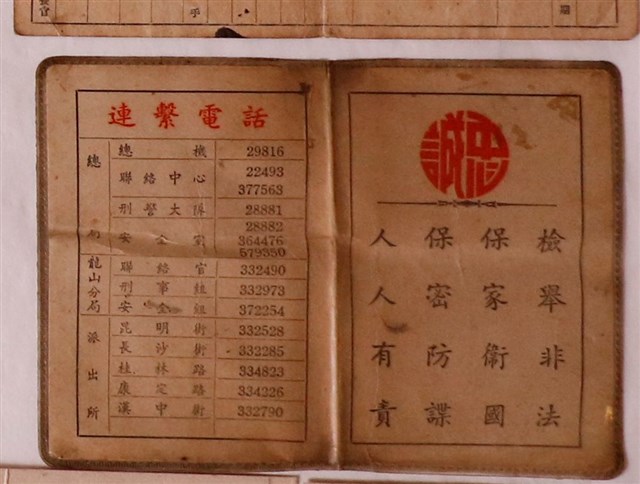 連繫電話
總局
總機 29816
聯絡中心 22493
377563
刑警大隊 28881
安全室 28882
364476
579350
龍山分局
聯絡官 332490
刑事組 332973
安全組 372254
派出所
昆明街 332528
長沙街 332285
桂林路 334823
康定路 334226
漢中街 332790
忠誠
檢舉非法
保家衛國
保密防諜
人人有責